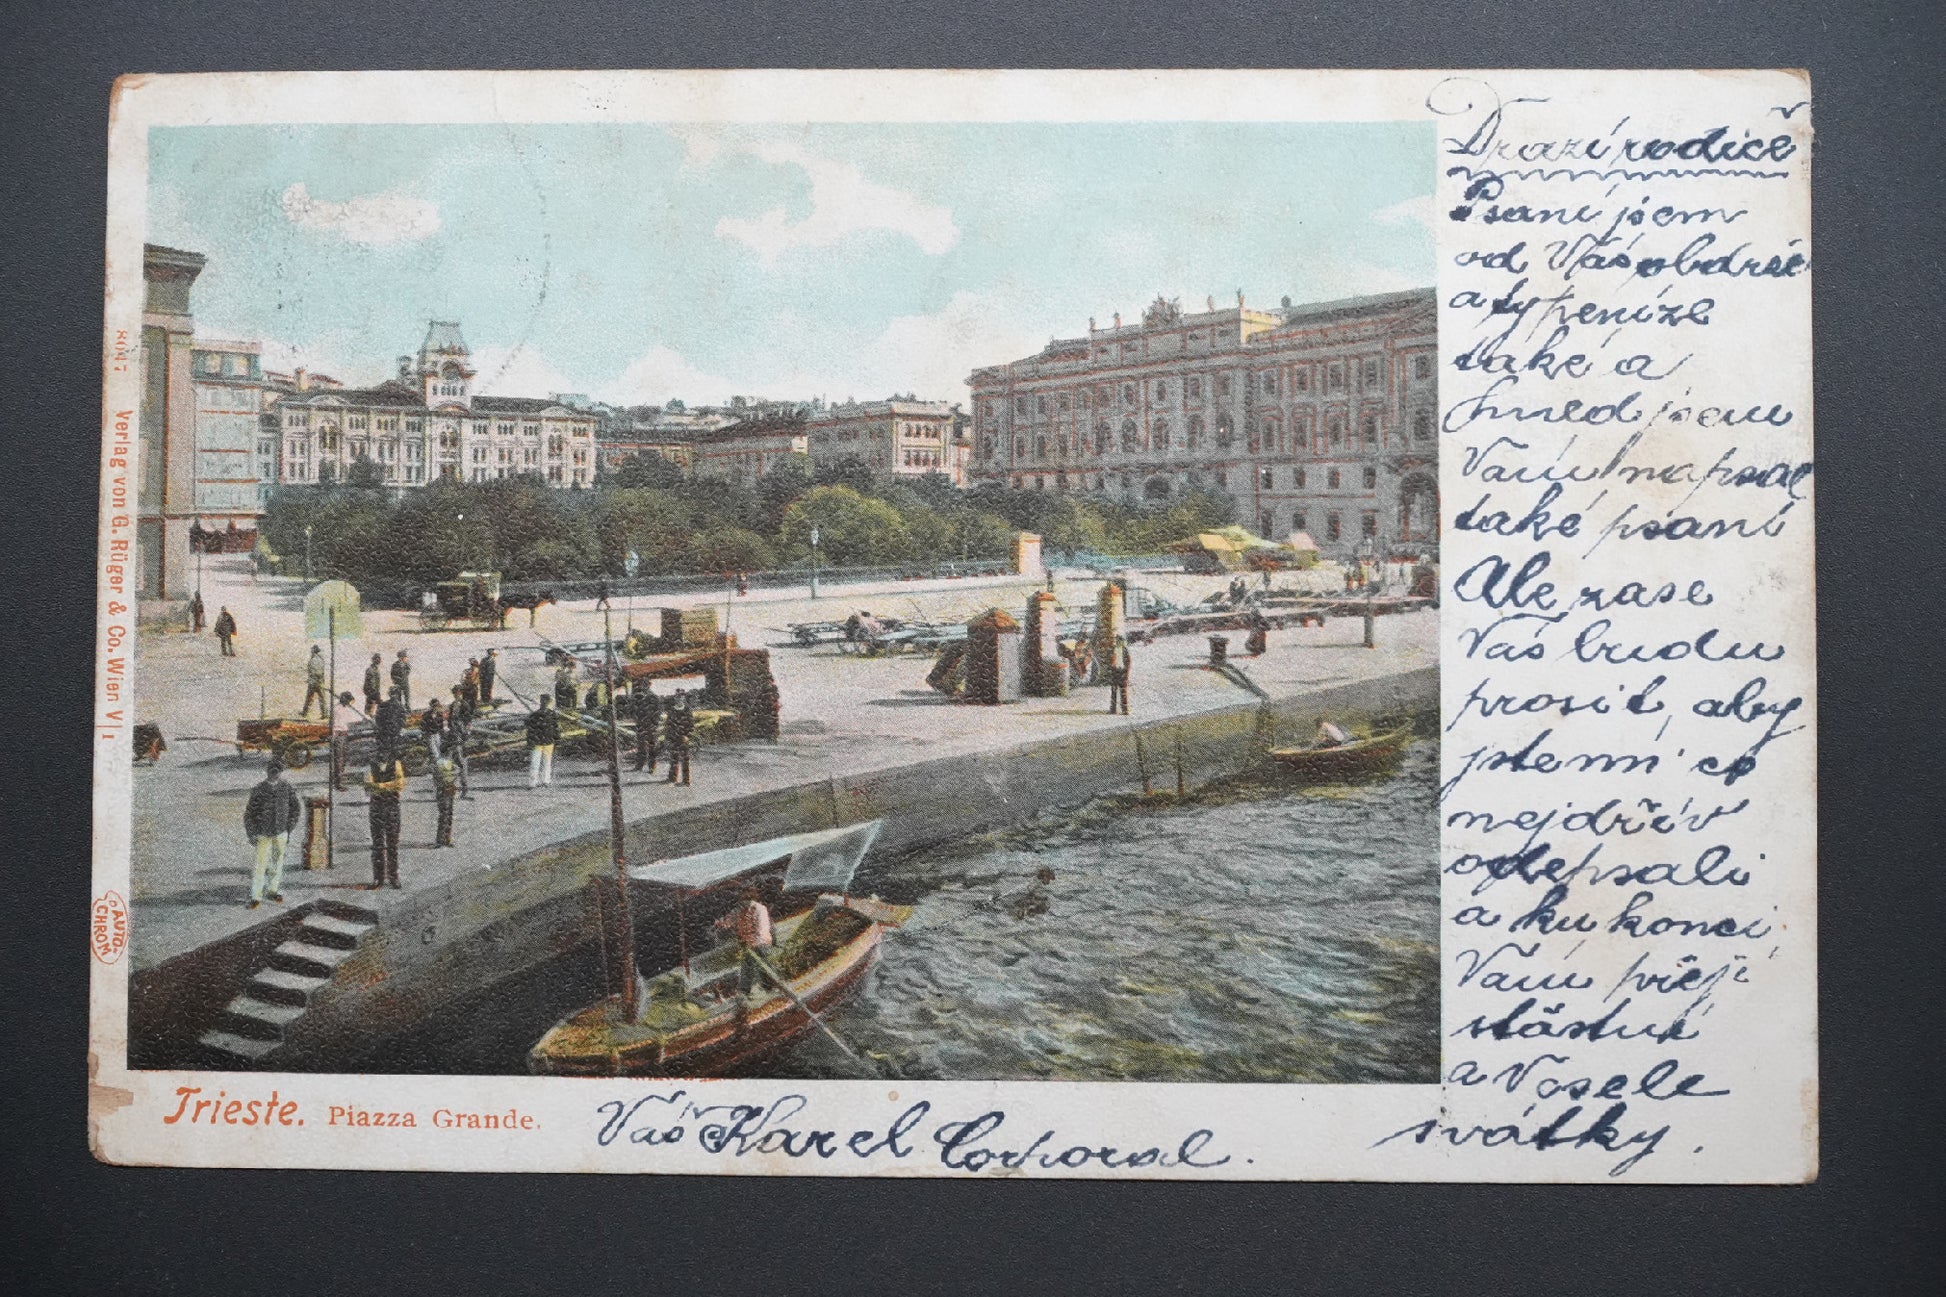 Drazí rodičě
Psaní jsem
od Vás obdrže
a ty peníze
také a
hned jsem
Vám napsal
také psaní
Ale zase
Vás budu
prosit, aby
jstemi co
nejdřív
odepsali
a ku konci
Vám přeji
štástné
a Vesele
svátky.
Váš Karel Corporal.
Trieste. Piazza Grande.
Verlag von G. Rüger & Co. Wien V|1
AUTO-
CHROM